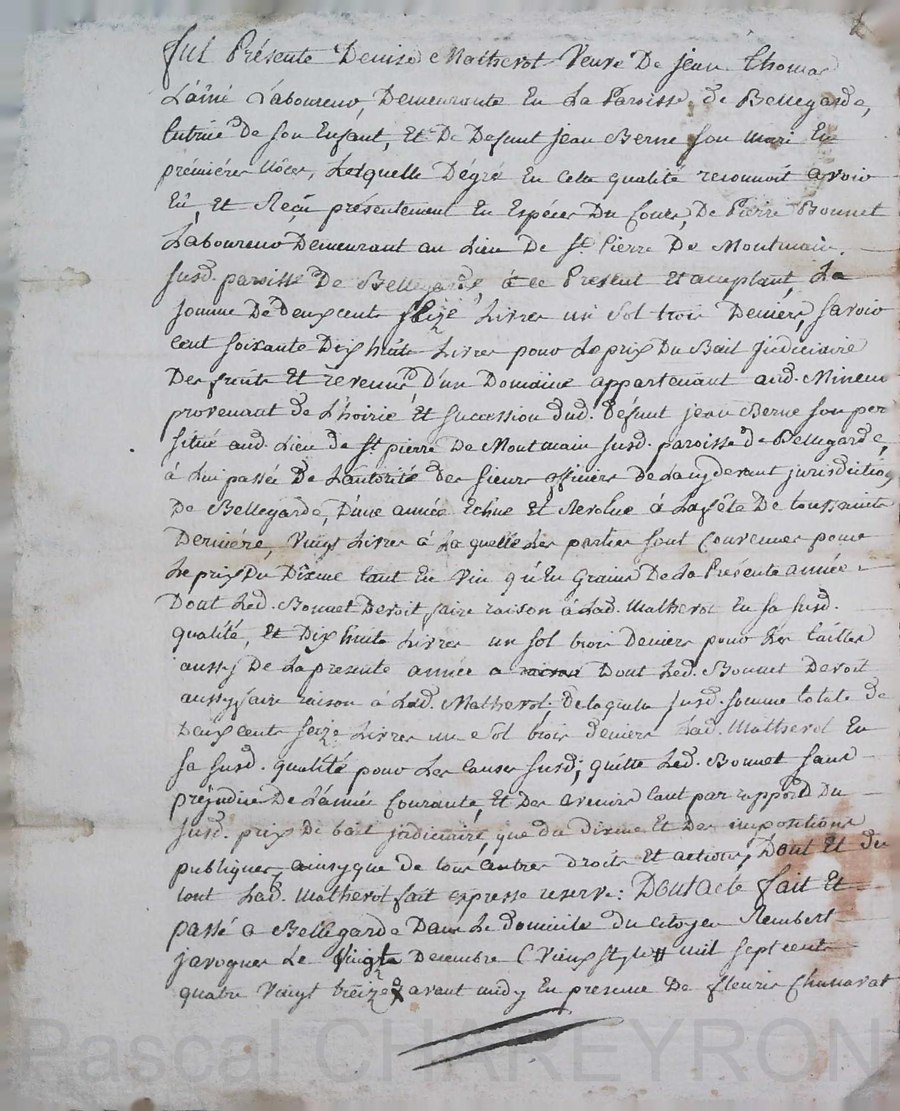 fut Présente Denise Matherot Veuve De jean Thomas
L'aîné Laboureur, Demeurante En La Paroisse de Bellegarde,
tutrice de son Enfant, Et De Defunt jean Berne son mari En
prémiéres Nôces, Lasquelle Dégré En Cete qualité reconnoit avoir
Eû, Et Reçu présentement En Espéces Du Cours, De Pierre Bonnet
Laboureur Demeurant au Lieu De St. Pierre De Montmain
susd. paroisse De Bellegarde, à ce Present Et acceptant, La
somme De deux cents seize Livres un sol trois Deniers, savoir
Cent soixante Dix huit Livres pour Le prix Du Bail judiciaire
Des fruits Et revenus D'un Domaine appartenant aud. Mineur
provenant de L'hoirie Et succession dud. défunt jean Berne son per
situé aud. Lieu de St pierre De Montmain susd. paroisse de Bellegarde
à Lui passée De L'autorité des sieurs officiers de La cy devant jurisdiction
De Bellegarde, D'une année Echue Et Revolue à La fête De toussaints
Derniére, Vingt Livres à La quelle Les parties sont Convenues pour
Le prix Du Dixme tant En Vin qu'En Grains De La Présente année
Dont Led. Bonnet Devoit faire raison à Lad. Matherot En sa susd.
qualité, Et Dix huit Livres un sol trois Deniers pour Les tailles
aussy De La presente année a Dont Led. Bonnet Devoit
aussy faire raison à Lad. Matherot, de laquelle susd. somme totale de
Deux cents seize Livres un sol trois deniers Lad. Matherot En
sa susd. qualité pour Les Causes susd., quitte Led. Bonnet sans
préjudice De L'année Courante, Et Des avenirs tant par rapport Du
susd. prix De bail judiciaire, que du Dixme Et Des impositions
publiques, ainsy que de tous autres droits Et actions, Dont Et du
tout Lad. Matherot fait expresse reserve: Dont acte fait Et
passé a Bellegarde Dans Le domicile du Citoyen Rembert
javogues Le Vingt Decembre (Vieux Style) mil sept cents
quatre Vingt treize avant midy En presence De fleurie Chanavat
Pascal CHAREYRON